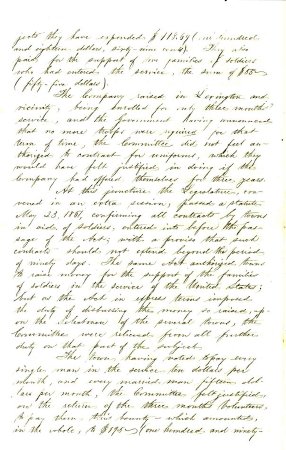 pose they have expended $118.69 (one hundred
and eighteen dollars, sixty-nine cents). They also
paid for the support of the families of soldiers
who had entered the service, the sum of $55—
(fifty-five dollars).
The Company raised in Lexington and
vicinity, being enrolled for only three months'
service, and the Government having announced
that no more troops were required for that
term of time, the Committee did not feel au-
thorized to contract for uniforms, which they
would have felt justified in doing if the
Company had offered themselves for three years.
At this juncture the Legislature, con-
vened in an extra session, passed a statute
May 23, 1861, confirming all contracts by towns
in aid of soldiers, entered into before the pas-
sage of the Act; with a proviso that such
contracts should not extend beyond the period
of ninety days. The same Act authorized towns
to raise money for the support of the families
of soldiers in the service of the United States;
but as the Act in express terms imposed
the duty of disbursing the money so raised, up-
on the Selectmen of the several towns, the
Committee were relieved from all further
duty on that part of the subject.
The Town, having voted to pay every
single man in the service ten dollars per
month, and every married man fifteen dol-
lars per month, the Committee felt justified,
on the return of the three months Volunteers,
to pay them this bounty - which amounted,
in the whole, to $195— (one hundred and ninety-